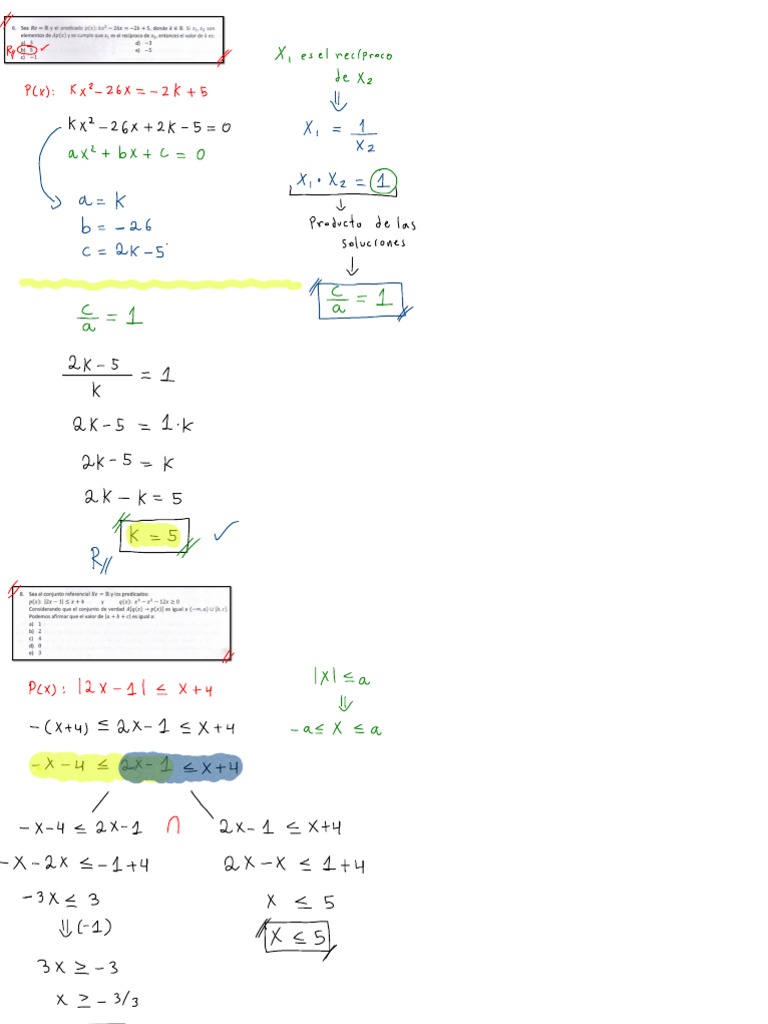 6. Sea Re = ℝ y el predicado p(x): kx² − 26x = −2k + 5, donde k ∈ ℝ. Si x₁, x₂ son
elementos de Ap(x) y se cumple que x₁ es el recíproco de x₂, entonces el valor de k es:
d) −3
R// b) 5 ✓ e) −5
c) −1
P(x): Kx² − 26x = −2K + 5
Kx² − 26x + 2K − 5 = 0
ax² + bx + c = 0
a = K
b = −26
c = 2K − 5
X₁ es el recíproco
de X₂
⇓
X₁ = 1/X₂
X₁ · X₂ = 1
↓
Producto de las
soluciones
↓
c/a = 1
c/a = 1
(2K − 5)/K = 1
2K − 5 = 1·K
2K − 5 = K
2K − K = 5
R// K = 5 ✓
8. Sea el conjunto referencial Re = ℝ y los predicados:
p(x): |2x − 1| ≤ x + 4 y q(x): x³ − x² − 12x ≥ 0
Considerando que el conjunto de verdad A[q(x) → p(x)] es igual a (−∞, a) ∪ [b, c].
Podemos afirmar que el valor de (a + b + c) es igual a:
a) 1
b) 2
c) 4
d) 0
e) 3
P(x): |2x − 1| ≤ x + 4
−(x+4) ≤ 2x − 1 ≤ x + 4
−x − 4 ≤ 2x − 1 ≤ x + 4
|x| ≤ a
⇓
−a ≤ x ≤ a
−x − 4 ≤ 2x − 1 ∩ 2x − 1 ≤ x + 4
−x − 2x ≤ −1 + 4 2x − x ≤ 1 + 4
−3x ≤ 3 x ≤ 5
⇓ (−1) x ≤ 5
3x ≥ −3
x ≥ −3/3